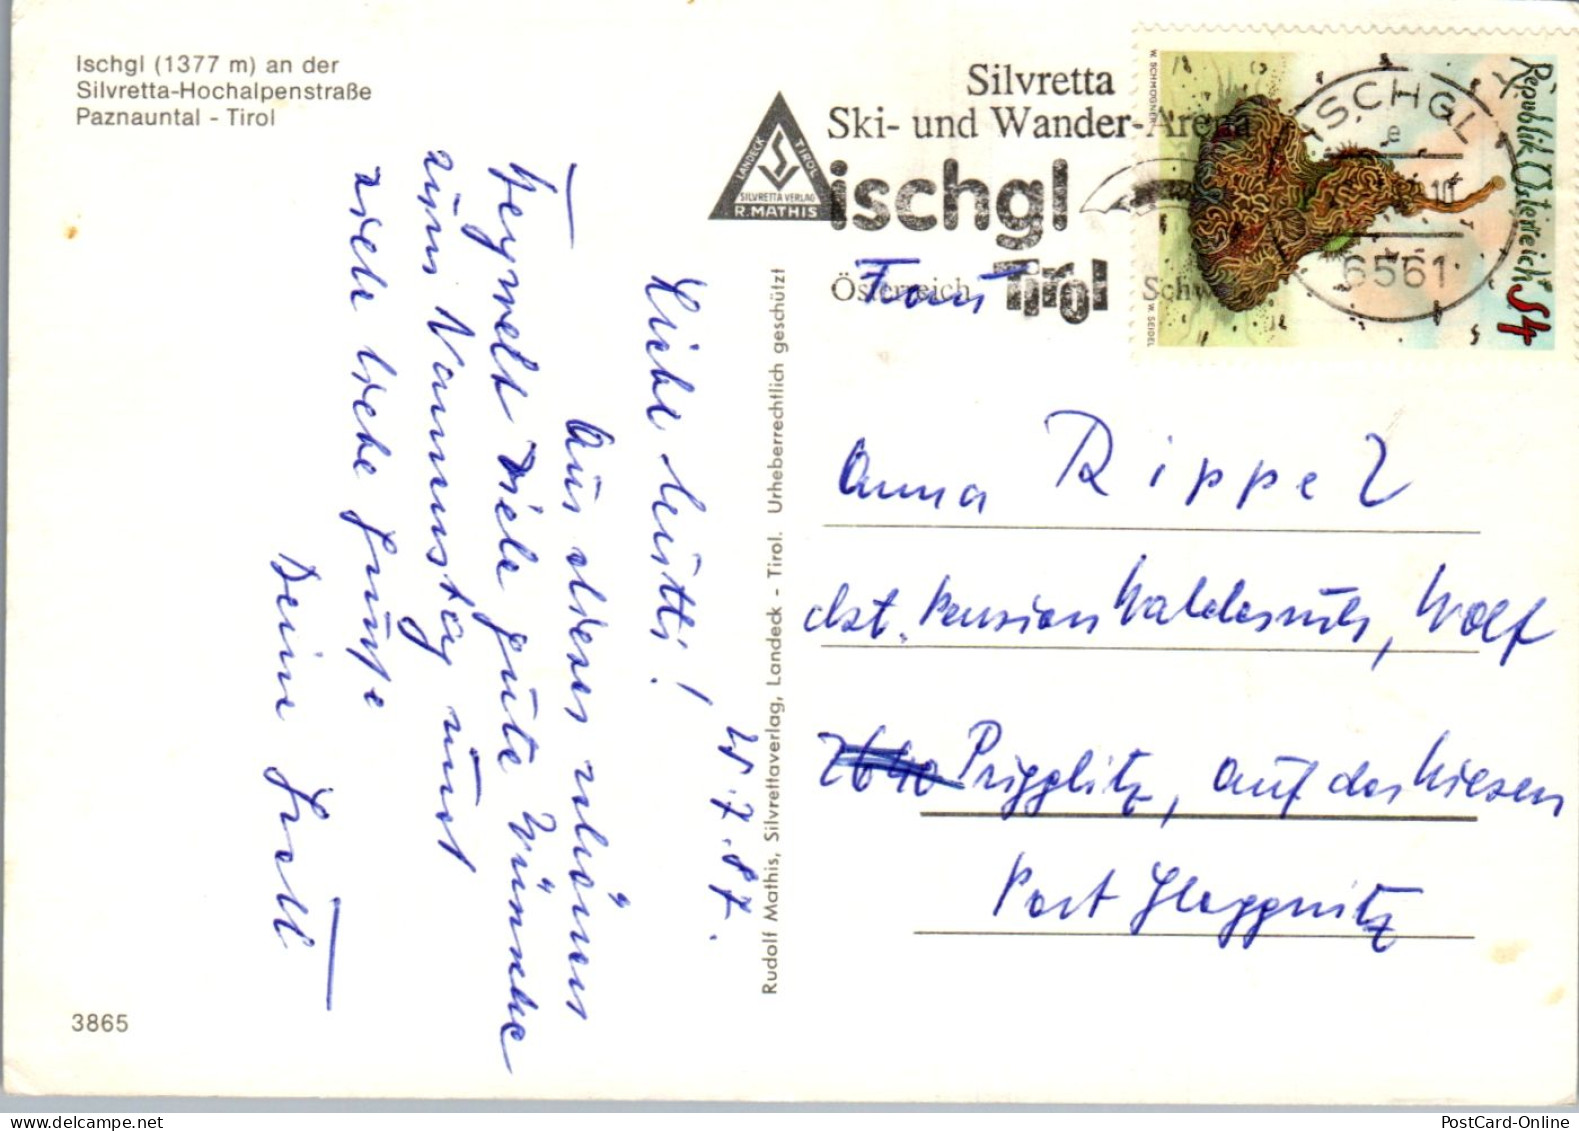 Ischgl (1377 m) an der
Silvretta-Hochalpenstraße
Paznauntal - Tirol
25.7.87.
Liebe Mutti!
Aus dieser schönen
Bergwelt viele gute Wünsche
zum Namenstag und
viele liebe Grüße
Deine Gretl
3865
Rudolf Mathis, Silvrettaverlag, Landeck - Tirol. Urheberrechtlich geschützt
LANDECK TIROL
SILVRETTA VERLAG
R. MATHIS
Silvretta
Ski- und Wander-Arena
ischgl
Tirol
Österreich
ISCHGL
e
6561
Republik Österreich S4
W. SCHMÖGNER
W. SEIDEL
Frau
Anna Rippel
dzt. Pension Waldesruh, Wolf
2640 Prigglitz, Auf der Wiesen
Post Gloggnitz
PostCard-Online